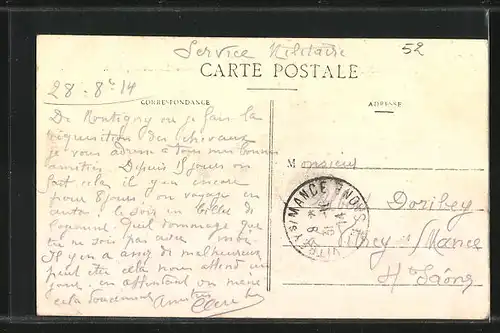 Service Militaire
52
CARTE POSTALE
28 - 8bre 14
CORRESPONDANCE
ADRESSE
De Montigny ou je fais la
réquisition des chevaux
je vous adresse à tous mes bonnes
amitiés. Depuis 15 jours on
fait cela il y en a encore
pour 8 jours on voyage en
auto. le soir en billet de
logement. Quel dommage que
tu ne sois pas avec moi.
Il y en a assez de malheureux
peut être cela nous attend un
jour. en attendant on mène
cela doucement
Monsieur
Doribey
Vitrey s/ Mance
Hte Saône
VITREY S/ MANCE